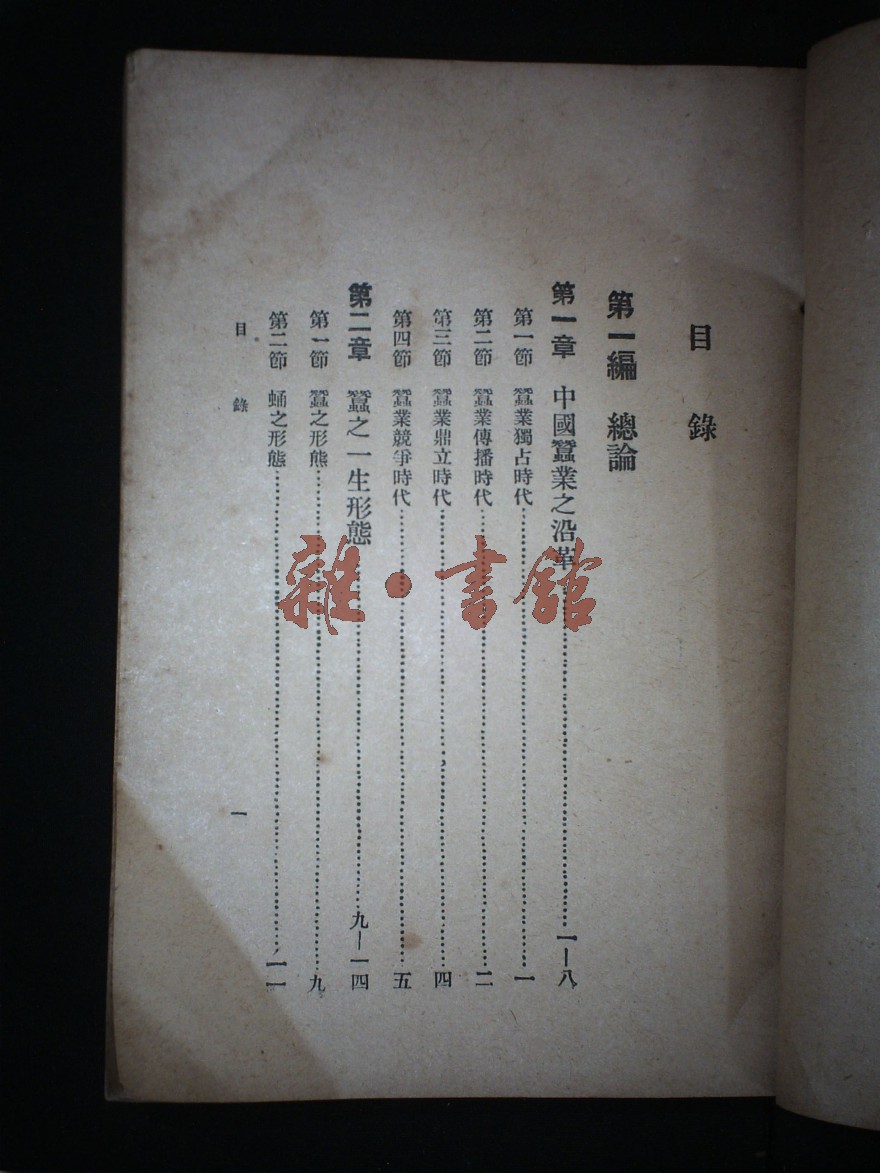 目錄
第一編 總論
第一章 中國蠶業之沿革……一—八
第一節 蠶業獨占時代……一
第二節 蠶業傳播時代……二
第三節 蠶業鼎立時代……四
第四節 蠶業競爭時代……五
第二章 蠶之一生形態……九—一四
第一節 蠶之形態……九
第二節 蛹之形態……一一
目錄 一
雜·書館